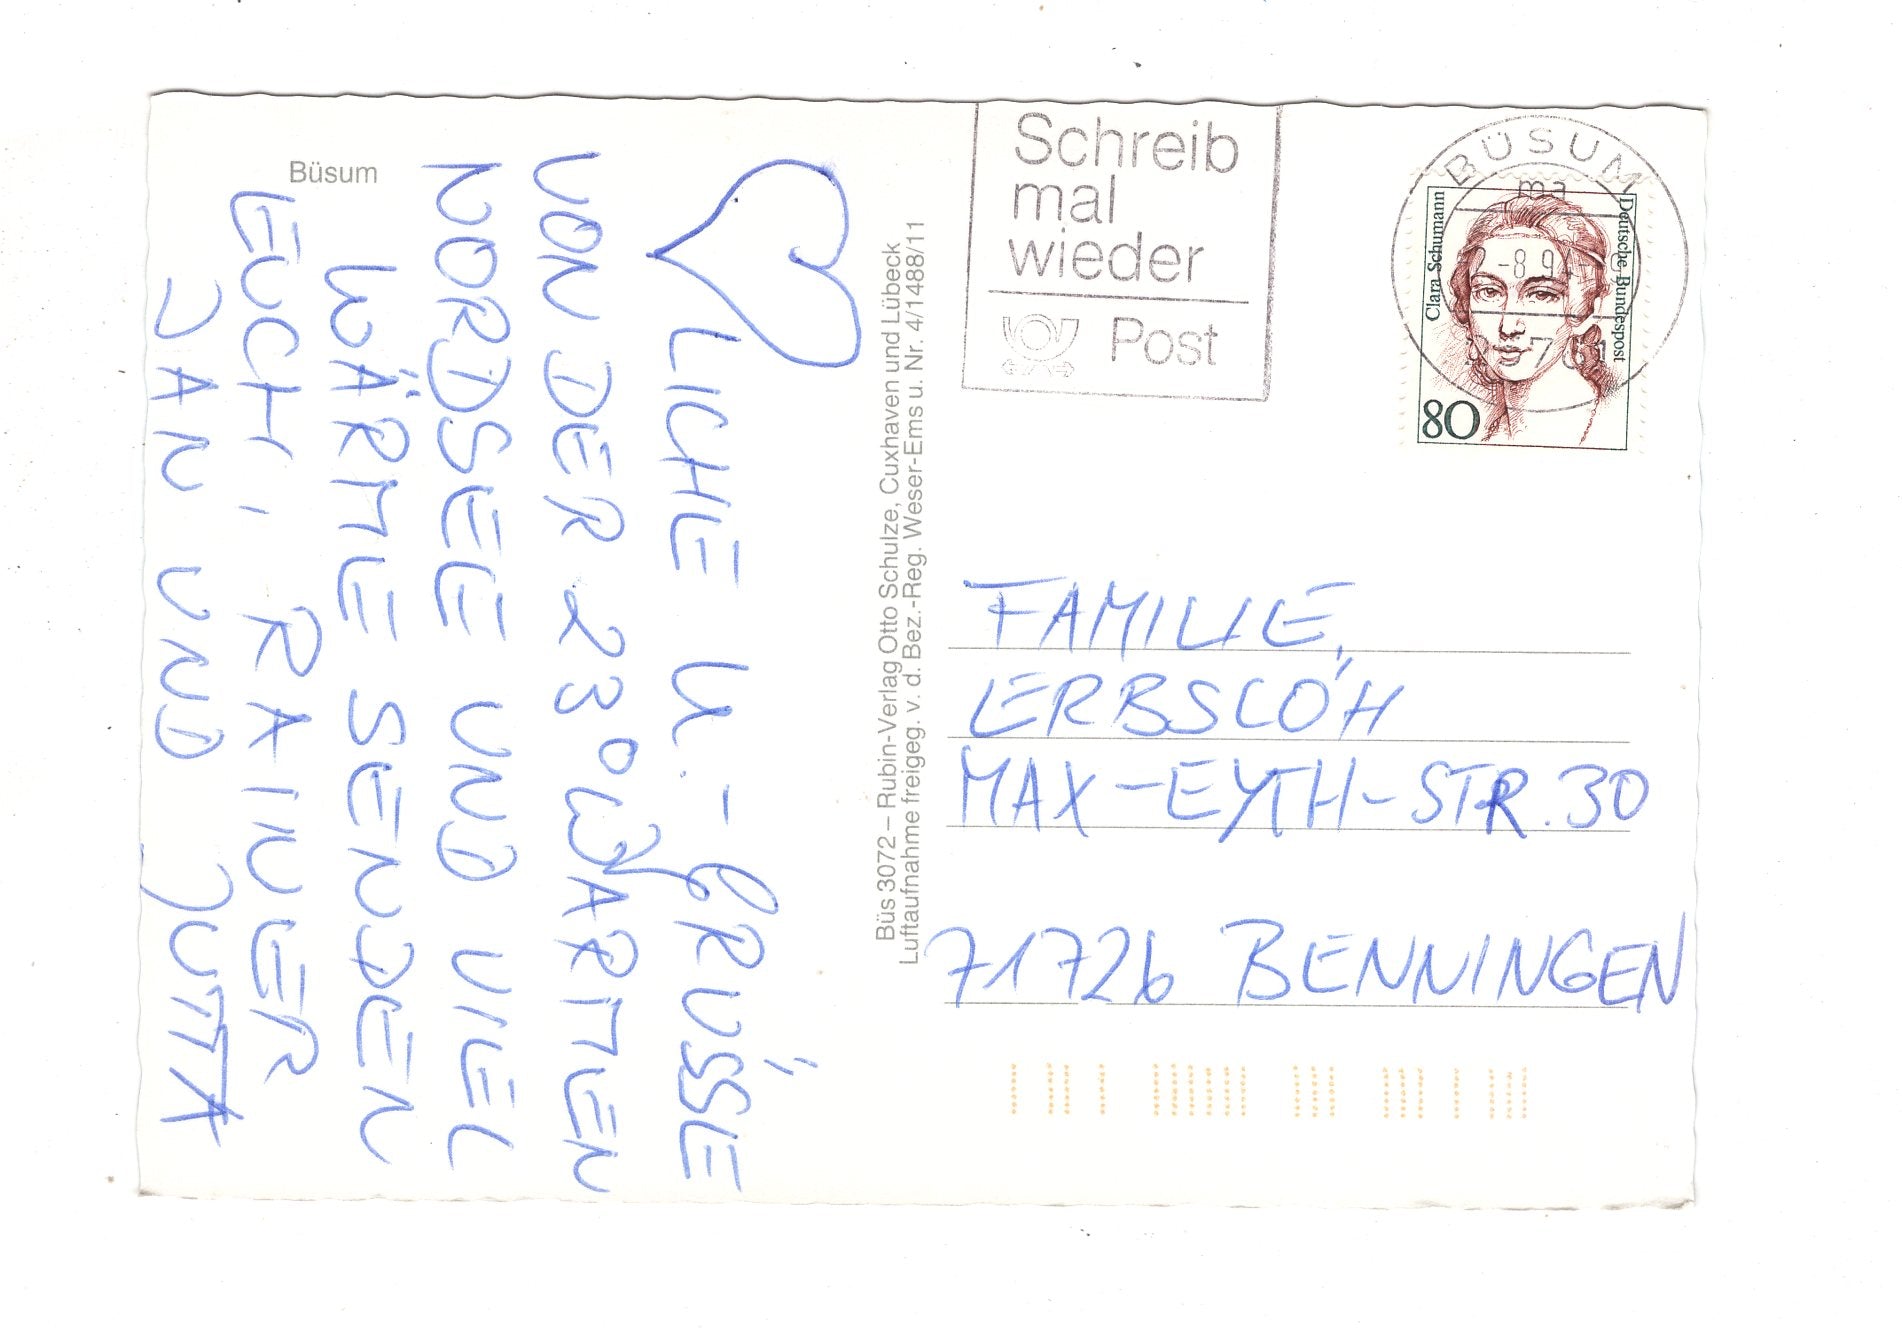 Büsum
LICHE U.-GRÜSSE
VON DER 23° WARMEN
NORDSEE UND VIEL
WÄRME SENDEN
EUCH, RAINER
JAN UND JUTTA
Büs 3072 – Rubin-Verlag Otto Schulze, Cuxhaven und Lübeck
Luftaufnahme freigeg. v. d. Bez.-Reg. Weser-Ems u. Nr. 4/1488/11
Schreib
mal
wieder
Post
BÜSUM
ma
Clara Schumann
Deutsche Bundespost
80
FAMILIE,
ERBSLÖH
MAX-EYTH-STR. 30
71726 BENNINGEN